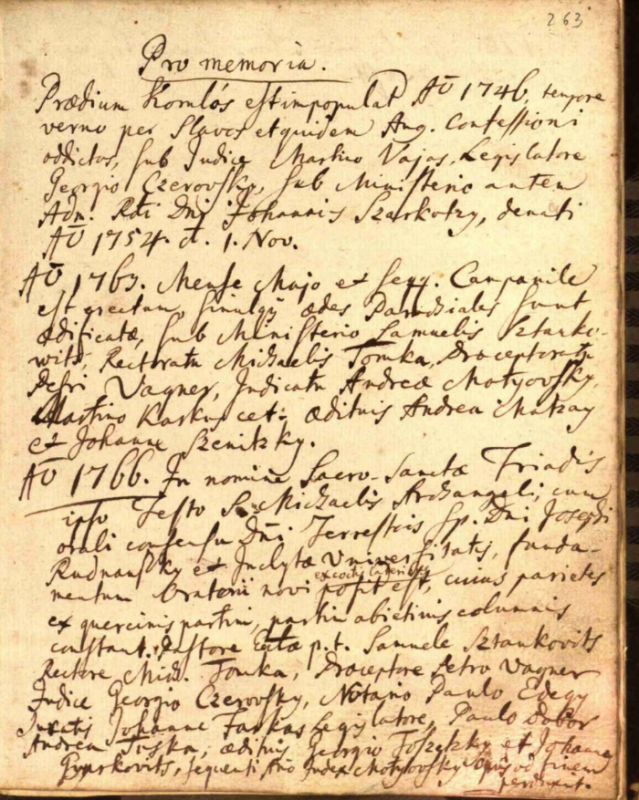 263
Pro memoria.
Prædium Komlós est impopulat Aō 1746, tempore
verno per Slavos et quidem Aug. Confessioni
addictos, sub Judice Martino Vajas, Legislatore
Georgio Czerovsky, sub Ministerio autem
Adm. Rdi Dni Johannis Szarkotzy, denati
Aō 1754. d. 1. Nov.
Aō 1763. Mense Majo et seqq. Campanile
est erectum, simulqz ædes Parochiales sunt
ædificatæ, sub Ministerio Samuelis Sztanko-
wits, Rectoratu Michaelis Tomka, Præceptoratu
Petri Vagner, Judicatu Andreæ Motyovsky,
Martino Karkus cet. ædituis Andrea Matzay
et Johanne Szenitzky.
Aō 1766. In nomine Sacro-Sanctæ Triadis
ipso Festo S. Michaelis Archangeli, cum
orali consensu Dni Terrestris Sp. Dni Josephi
Rudnanszky et Inclytæ Universitatis, funda-
mentum Oratorii novi posit est, cuius parietes
ex quercinis partim, partim abietinis columnis
constant. Pastore p.t. Samuele Sztankovits
Rectore Mich. Tomka, Præceptore Petro Vagner
Judice Georgio Czerovsky, Notario Paulo
Juratis Johanne Farkas Legislatore, Paulo Dobor
Andrea Suska, ædituis Georgio et Johanne
Gyurkovits, sequenti Ano Judex Motyovsky opus ad finem
perduxit.